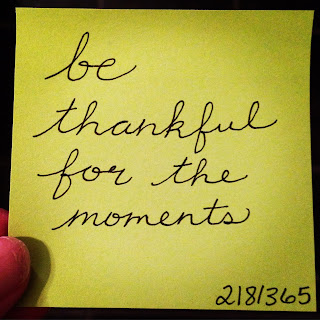 be
thankful
for the
moments
218/365